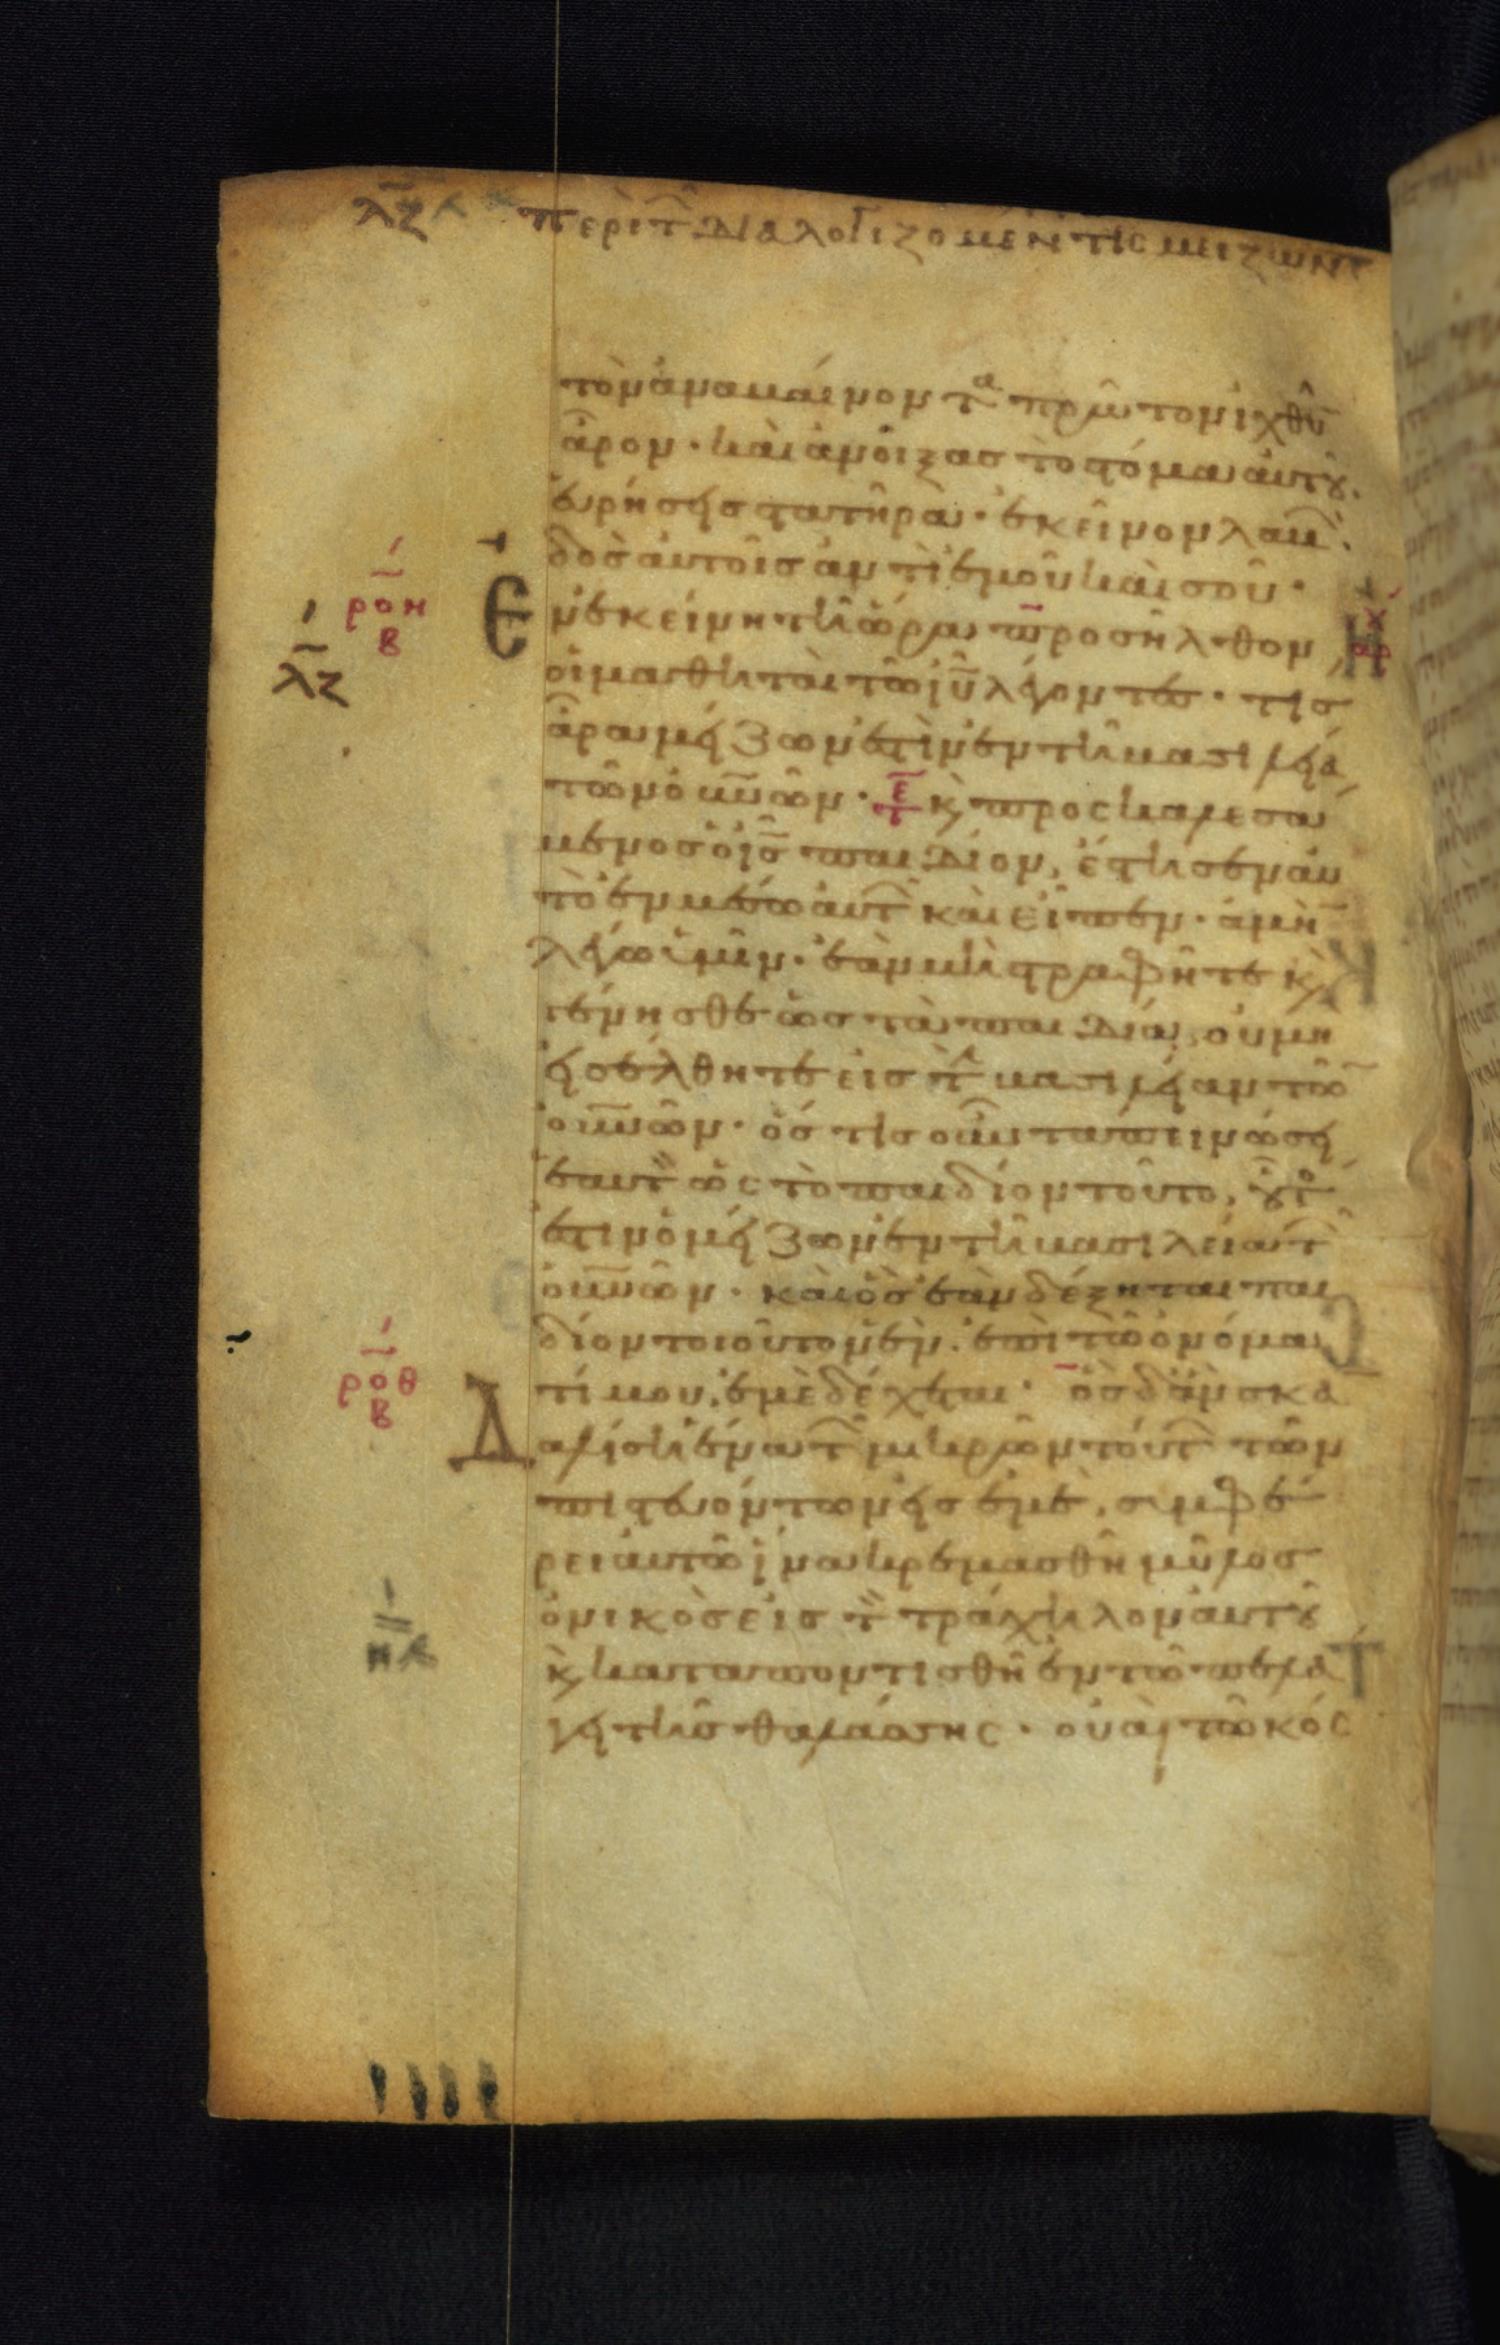 λζ περὶ τ διαλογιζομέν τίς μείζων
τὸν ἀναβαίνοντα πρῶτον ἰχθὺ
ἆρον· καὶ ἀνοίξας τὸ στόμα αὐτοῦ.
εὑρήσεις στατῆρα· ἐκεῖνον λαβ
δὸς αὐτοῖς ἀντὶ ἐμοῦ καὶ σοῦ·
ροη
β
λζ
Ἐν ἐκείνη τῆ ὥρα προσῆλθον
οἱ μαθηταὶ τῶ ιυ λέγοντες· τίς
ἄρα μείζων ἐστὶν ἐν τῆ βασιλεία
τῶν οὐνῶν· κ προσκαλεσα
μενος ὁ ις παιδίον, ἔστησεν αυ
τὸ ἐν μέσω αὐτ καὶ εἶπεν· ἀμὴ
λέγω ὑμῖν· ἐὰν μὴ στραφῆτε κ
γένησθε ὡς τὰ παιδία, οὐ μὴ
εἰσέλθητε εἰς τ βασιλείαν τῶ
οὐνῶν· ὅστις οὖν ταπεινώσει
ἑαυτ ὡς τὸ παιδίον τοῦτο, οὗτο
ἐστιν ὁ μείζων ἐν τῆ βασιλεία τ
οὐνῶν· καὶ ὃς ἐὰν δέξηται παι
δίον τοιοῦτον ἓν· ἐπὶ τῶ ὀνόμα
ροθ
β
τί μου, ἐμὲ δέχεται· ὃς δ' ἂν σκα
Δαλίση ἕνα τ μικρῶν τούτ τῶν
πιστευόντων εἰς ἐμὲ, συμφέ
ρει αὐτῶ ἵνα κρεμασθῆ μύλος
ὀνικὸς εἰς τ τράχηλον αὐτοῦ
κ καταποντισθῆ ἐν τῶ πελά
γει τῆς θαλάσσης· οὐαὶ τῶ κόσ